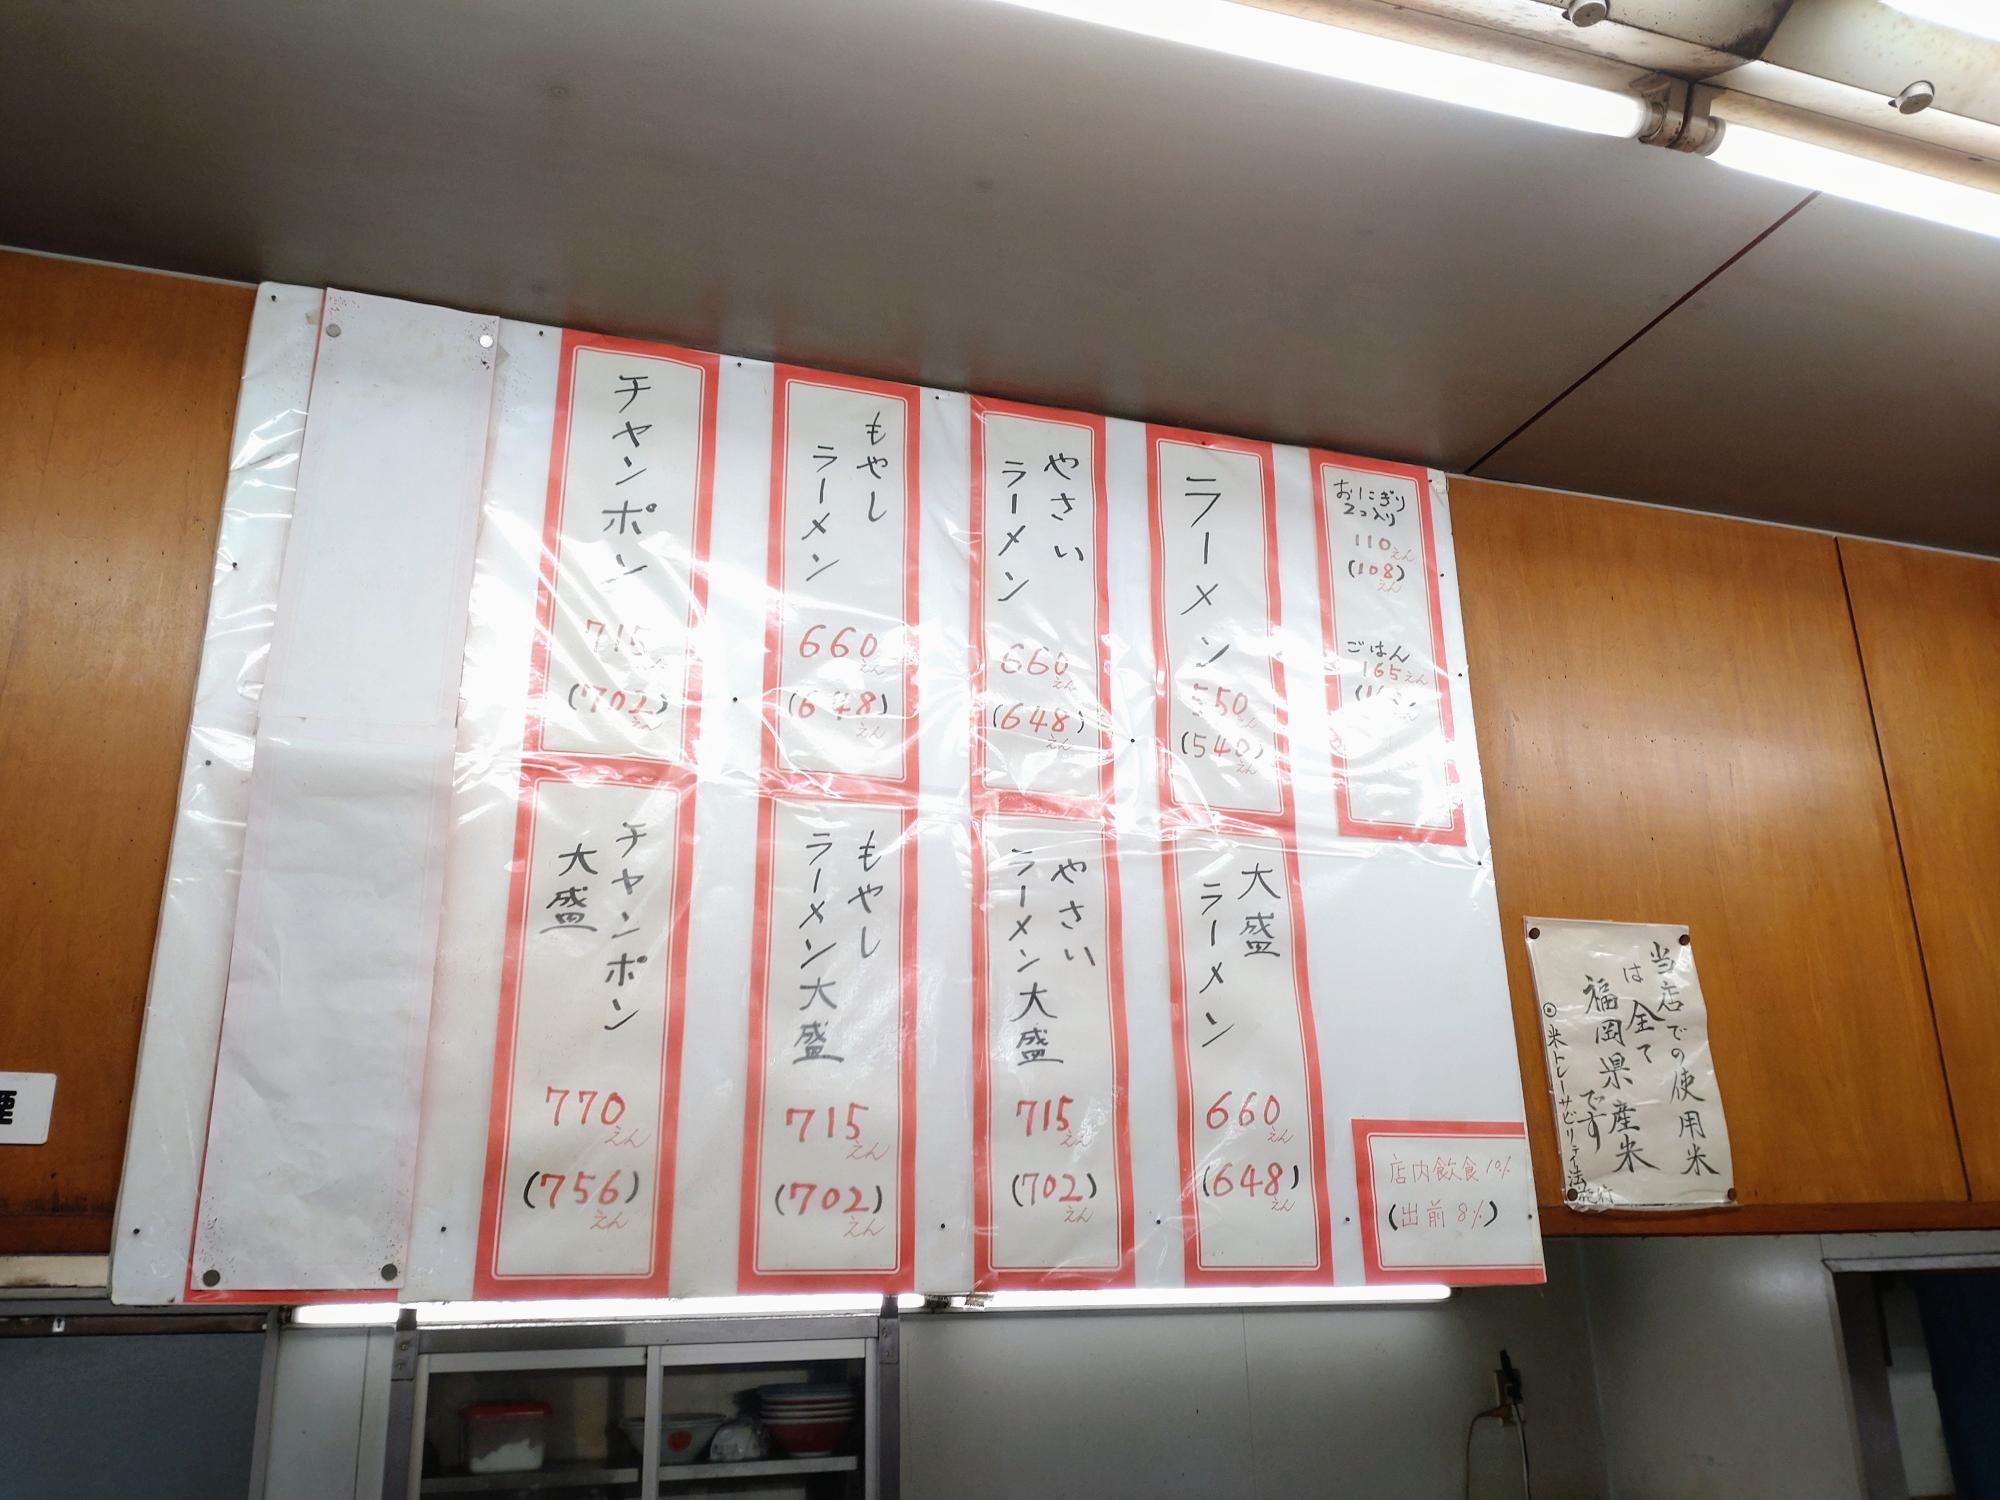 おにぎり
2つ入り
110えん
(108)
えん
ごはん
165えん
ラーメン
550
えん
(540)
えん
大盛
ラーメン
660
えん
(648)
えん
やさい
ラーメン
660
えん
(648)
えん
やさい
ラーメン大盛
715
えん
(702)
えん
もやし
ラーメン
660
えん
(648)
えん
もやし
ラーメン大盛
715
えん
(702)
えん
チャンポン
715
えん
(702)
えん
チャンポン
大盛
770
えん
(756)
えん
店内飲食10%
(出前8%)
当店での使用米
は全て
福岡県産米
です
◎米トレーサビリティ法